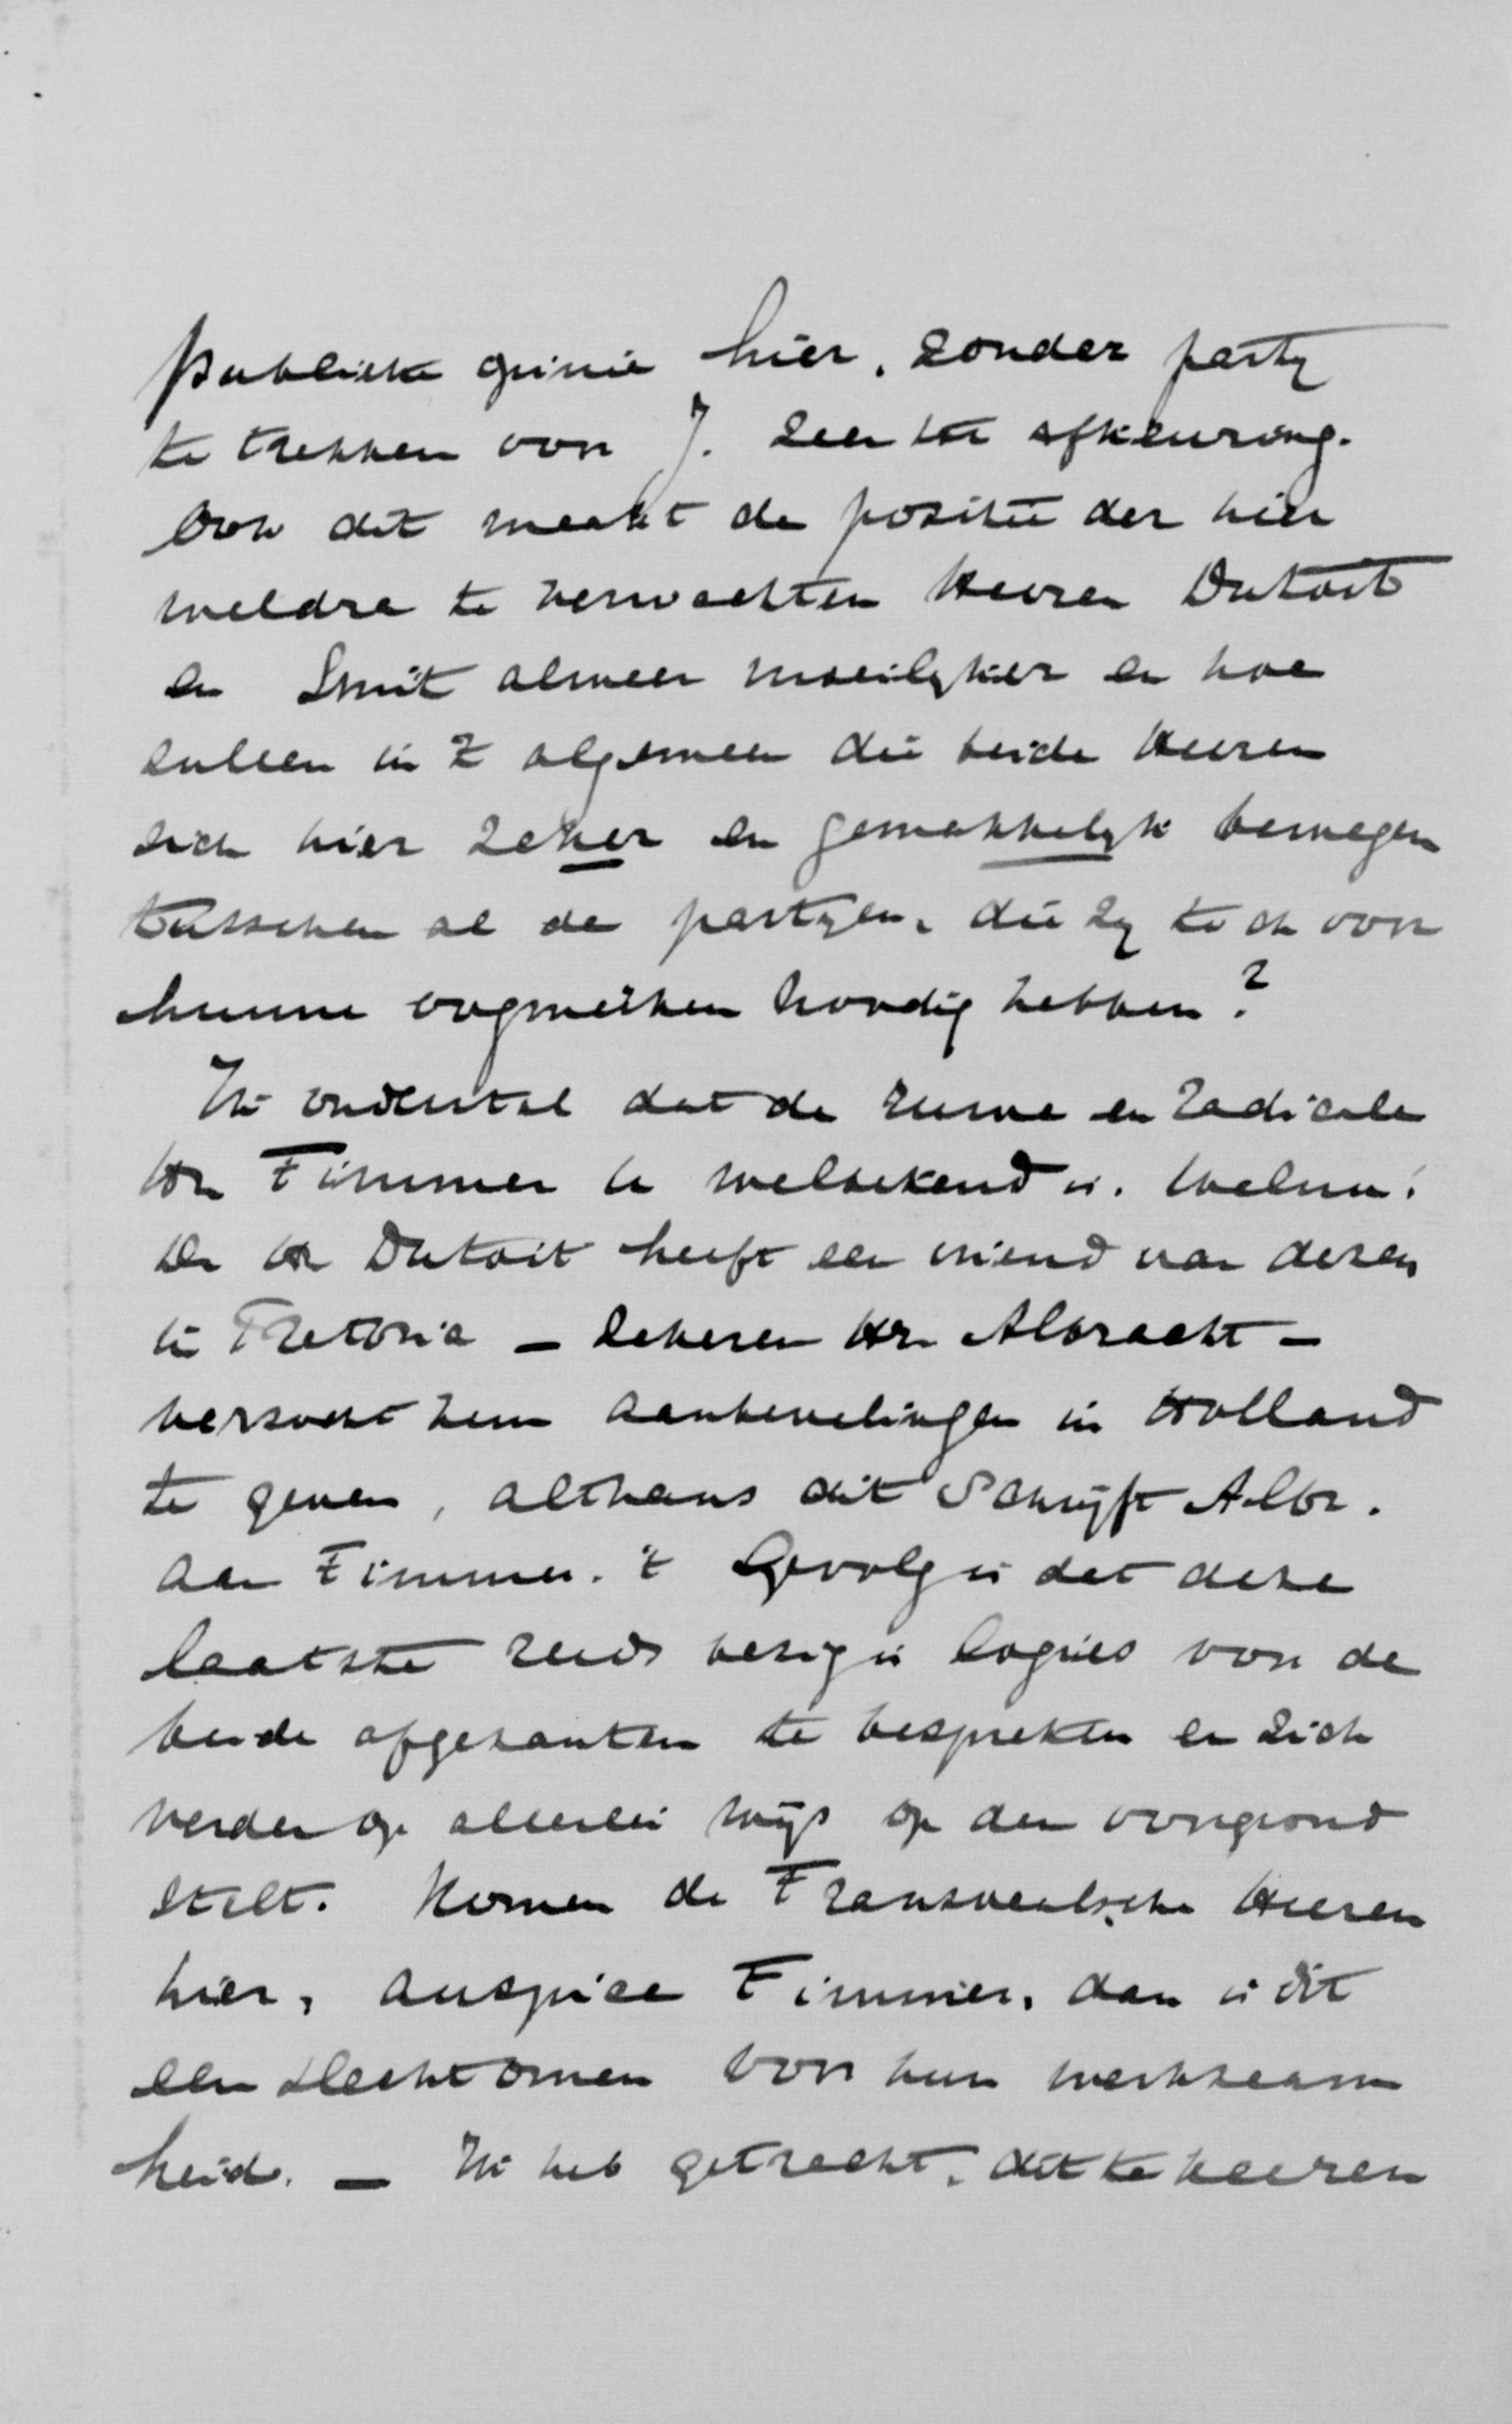 publieke opinie hier, zonder party
te trekken voor J. zeer ter afkeuring.
Ook dit maakt de positie der hier
weldra te verwachten Heeren Dutoit
en Smit almeer moeilyker en hoe
zullen in 't algemeen die beide Heeren
zich hier zeker en gemakkelyk bewegen
tusschen al de partyen, die zy toch voor
hunne oogmerken noodig hebben?
Ik onderstel dat de ruwe en radicale
Hr Timmer U welbekend is. Welnu!
De Hr Dutoit heeft een vriend van dezen
in Pretoria — zekeren Hr. Albracht —
verzocht hem aanbevelingen in Holland
te geven, althans dit schryft Albr.
aan Timmer. 't Gevolg is dat deze
laatste reeds bezig is logies voor de
beide afgezanten te bespreken en zich
verder op allerlei wys op den voorgrond
stelt. Komen de Transvaalsche Heeren
hier, auspice Timmer, dan is dit
een slecht omen voor hun werkzaam
heid. — Ik heb getracht, dit te keeren